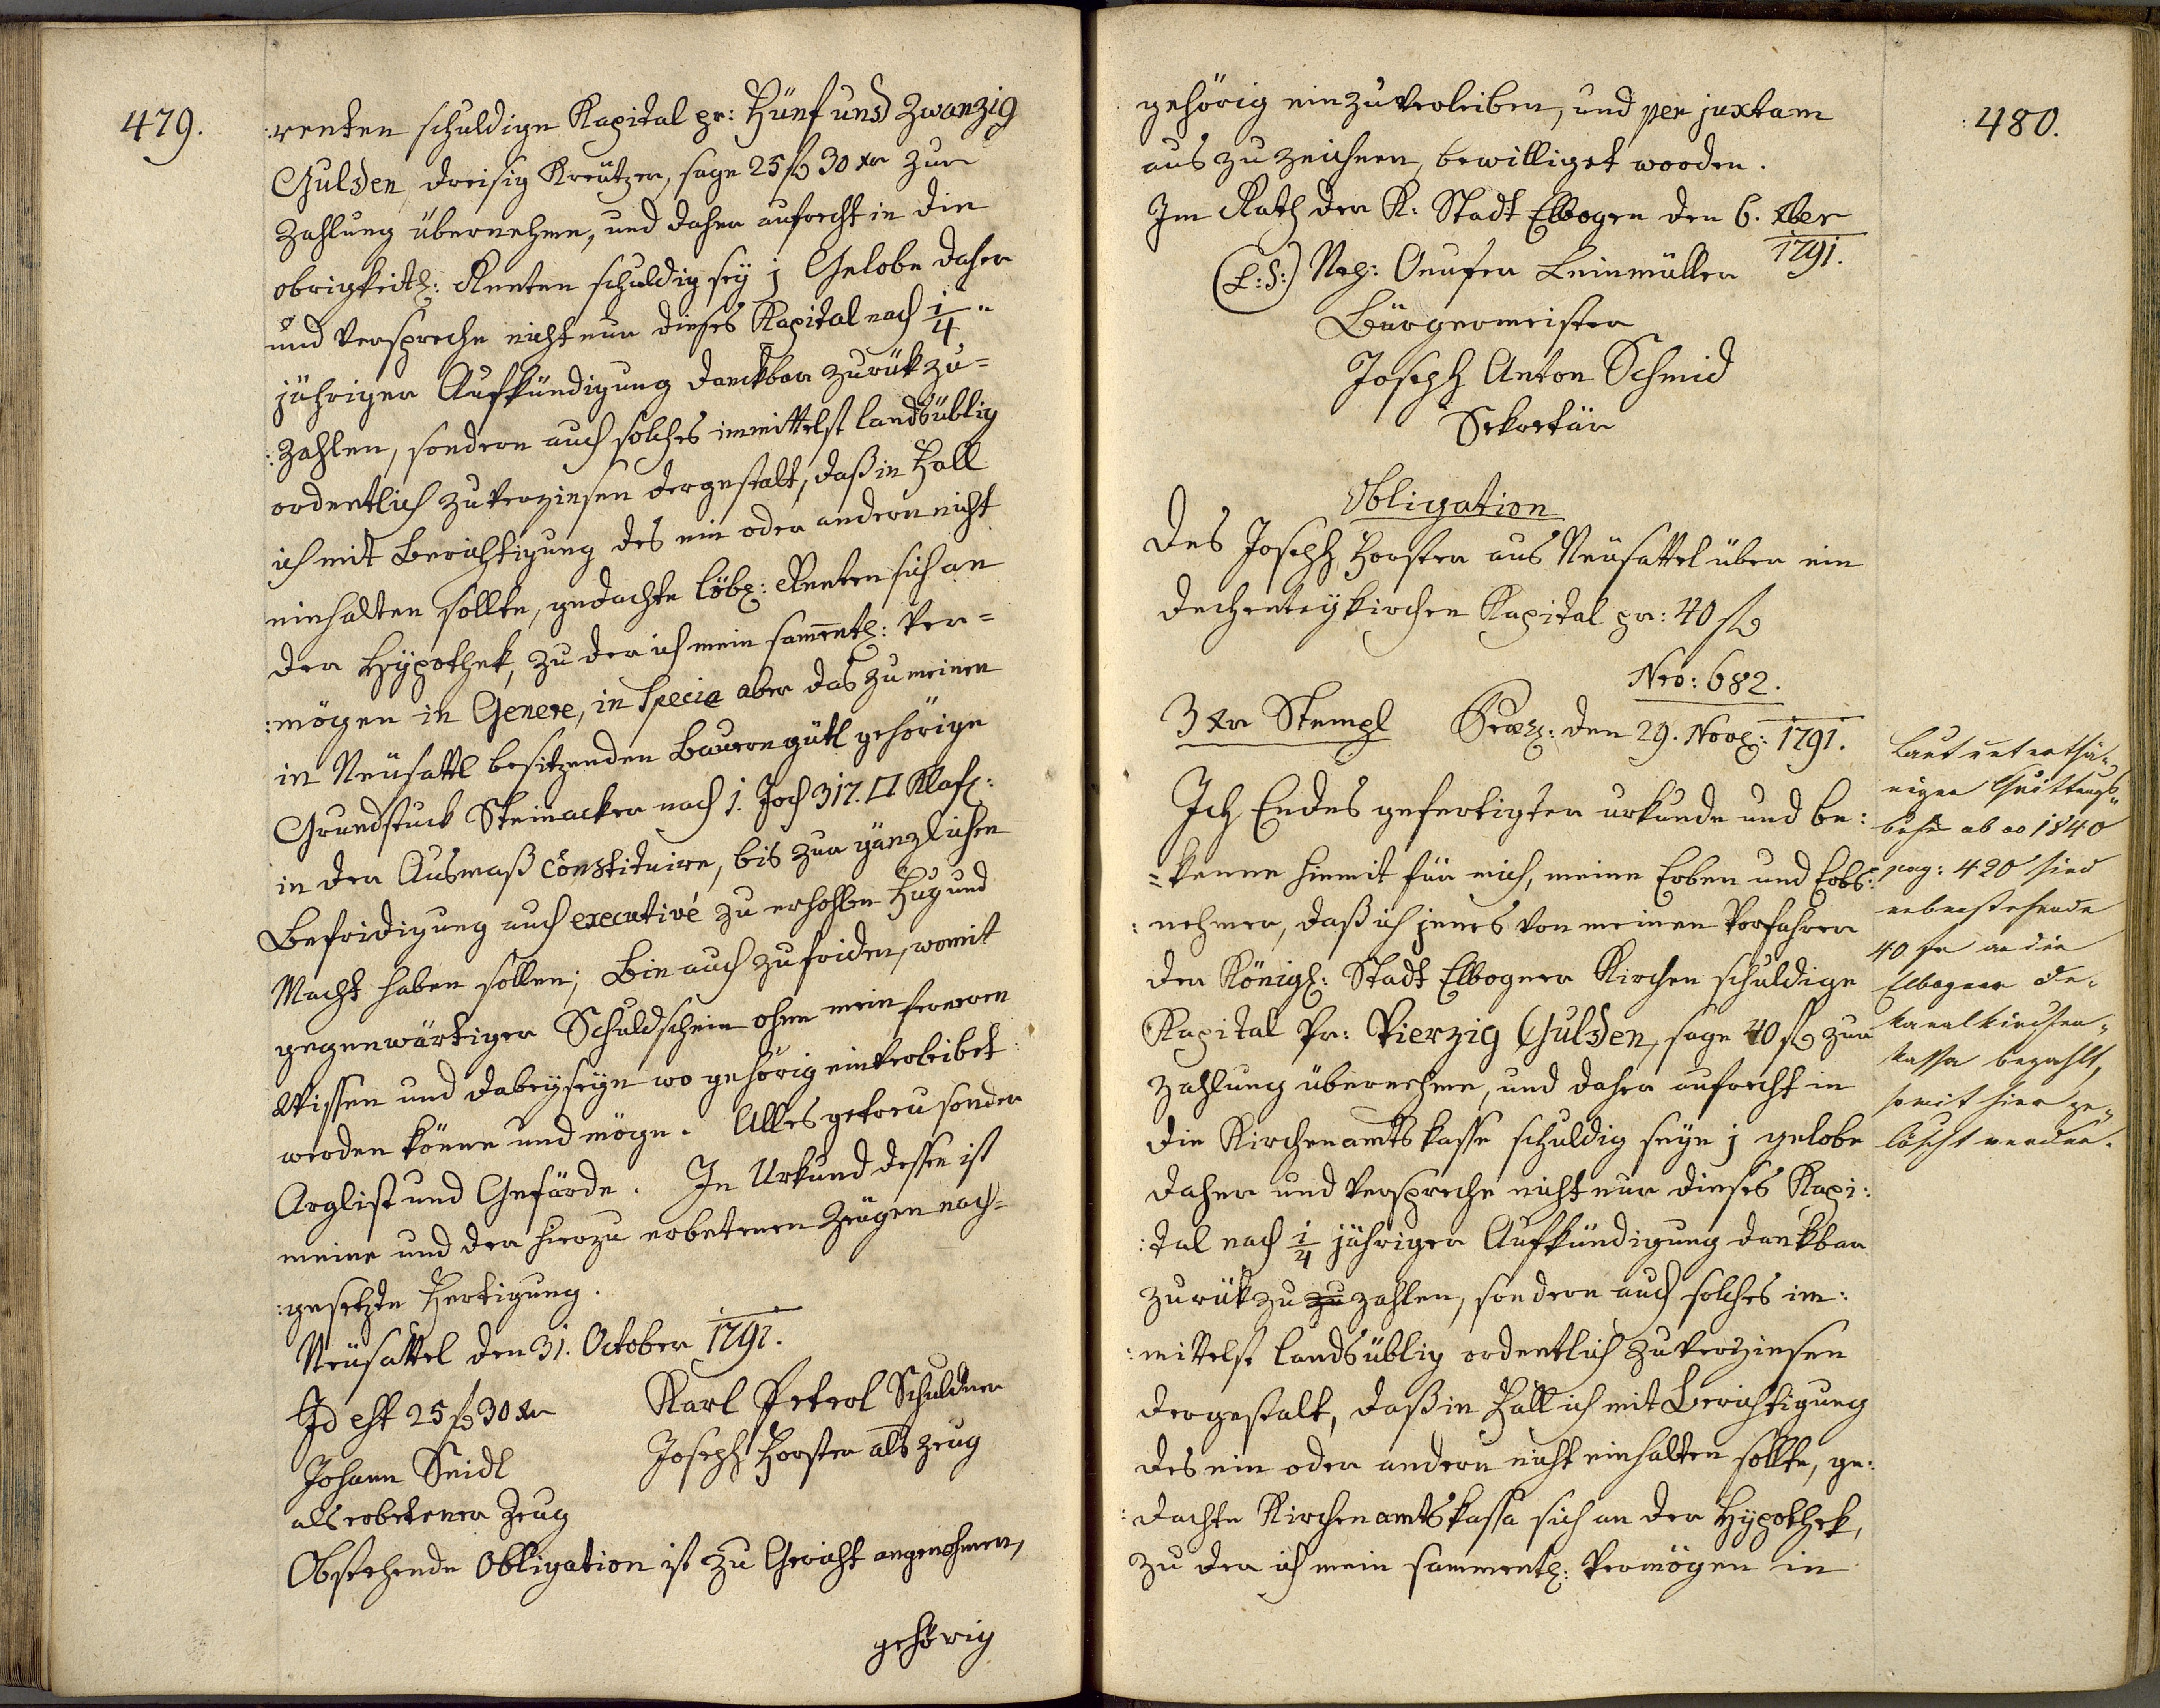 479.
:renten schuldige Kapital pr: Fünf und Zwanzig
Gulden, dreisig Kreützer, sage 25 fl 30 xr zur
Zahlung übernehme, und daher aufrecht in die
obrigkeitl: Renten schuldig sey; Gelobe daher
und verspreche nicht nur dieses Kapital nach 1/4 "
jähriger Aufkündigung danckbar zurük zu=
:zahlen, sondern auch solches inmittelst landsüblig
ordentlich zu verzinsen dergestalt, daß in Fall
ich mit Berichtigung des ein oder andern nicht
einhalten sollte, gedachte löbl: Renten sich an
der Hÿpothek, zu der ich mein sammentl: Ver=
:mögen in Genere, in Specie aber das zu meinen
in Neüsattl besitzenden Bauerngütl gehörige
Grundstuck Steinacker nach 1. Joch 317. □ Klaft:
in der Ausmaß constituire, bis zur gänzlichen
Befridigung auch executivé zu erhohlen Fug und
Macht haben sollen; Bin auch zufriden, womit
gegenwärtiger Schuldschein ohne mein ferneren
Wissen und dabeyseyn wo gehörig einverleibet
werden könne und möge. Alles getreu sonder
Arglist und Gefärde. In Urkund dessen ist
meine und der hierzu erbetenen Zeugen nach=
:gesetzte Fertigung.
Neüsattel den 31. October 1791.
Id est 25 fl 30 xr Karl Peterl Schuldner
Johann Seidl Joseph Forster als Zeug
als erbetener Zeug
Obstehende Obligation ist zu Gericht angenohmen,
gehörig
480.
gehörig einzuverleiben, und per juxtam
aus zu zeichnen, bewilliget worden.
Im Rath der K: Stadt Elbogen den 6. xber
1791.
(L:S:) Mg: Onufer Leinmüller
Bürgermeister
Joseph Anton Schmid
Sekretär
Obligation
Des Joseph Forster aus Neüsattel über ein
Dechenteÿkirchen Kapital pr: 40 fl
Nro: 682.
3 xr Stempl Präs: den 29. Nov: 1791.
Ich Endes gefertigter urkunde und be:
=kenne hiemit für mich, meine Erben und Erbs:
:nehmer, daß ich jenes von meinen Vorfahrer
der Königl: Stadt Elbogner Kirchen schuldige
Kapital Pr: Vierzig Gulden, sage 40 fl zur
Zahlung übernehme, und daher aufrecht in
die Kirchenamtskasse schuldig seye; gelobe
daher und verspreche nicht nur dieses Kapi:
:tal nach 1/4 jähriger Aufkündigung dankbar
zurük zu zu zahlen, sondern auch solches in:
:mittelst landsüblig ordentlich zu verzinsen
dergestalt, daß in Fall ich mit Berichtigung
des ein oder andern nicht einhalten sollte, ge:
:dachte Kirchenamtskassa sich an der Hÿpothek,
zu der ich mein sammentl: Vermögen in
Laut unterthä„
niger Quittungs„
buch ab ao 1840
pag: 420 sind
nebenstehende
40 fr an die
Elbogner De„
kanalkirchen„
kassa bezahlt,
somit hier ge„
löscht werden.